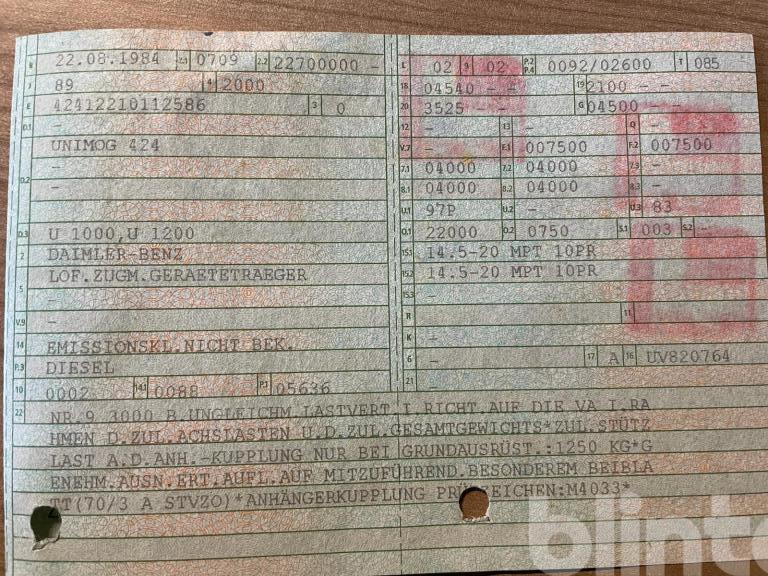 B 22.08.1984 2.1 0709 2.2 22700000 -
J 89 4 2000
E 42412210112586 3 0
D.1 -
UNIMOG 424
D.2 -
-
D.3 U 1000,U 1200
2 DAIMLER-BENZ
5 LOF.ZUGM.GERAETETRAEGER
-
V.9 -
14 EMISSIONSKL.NICHT BEK.
P.3 DIESEL
10 0002 14.1 0088 P.1 05636
L 02 9 02 P.2 P.4 0092/02600 T 085
18 04540 - - 19 2100 - -
20 3525 - - G 04500 -
12 - 13 - Q -
V.7 - F.1 007500 F.2 007500
7.1 04000 7.2 04000 7.3 -
8.1 04000 8.2 04000 8.3 -
U.1 97P U.2 - U.3 83
O.1 22000 O.2 0750 S.1 003 S.2 -
15.1 14.5-20 MPT 10PR
15.2 14.5-20 MPT 10PR
15.3 -
R 11
K -
6 - 17 A 16 UV820764
21
22 NR.9 3000 B.UNGLEICHM.LASTVERT.I.RICHT.AUF DIE VA I.RA
HMEN D.ZUL.ACHSLASTEN U.D.ZUL.GESAMTGEWICHTS*ZUL.STÜTZ
LAST A.D.ANH.-KUPPLUNG NUR BEI GRUNDAUSRÜST.:1250 KG*G
ENEHM.AUSN.ERT.AUFL.AUF MITZUFÜHREND.BESONDEREM BEIBLA
TT(70/3 A STVZO)*ANHÄNGERKUPPLUNG PRÜFZEICHEN:M4033*
blinto